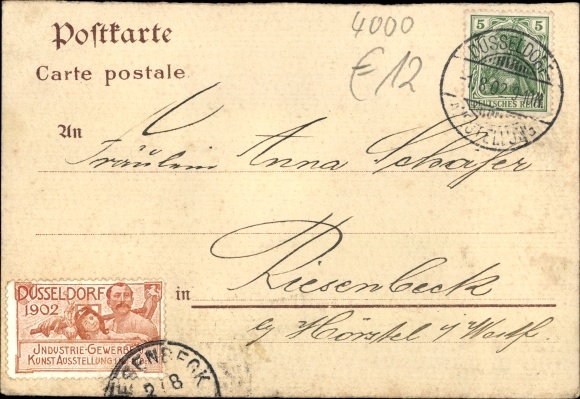 Postkarte
Carte postale
4000
€ 12
5 5
DEUTSCHES REICH
DÜSSELDORF
1.8.02
AUSSTELLUNG
An
Fräulein Anna Schäfer
in
Riesenbeck
b/ Hörstel i/ Westf.
DÜSSELDORF
1902
INDUSTRIE-GEWERBE
KUNSTAUSSTELLUNG
RIESENBECK
2/8